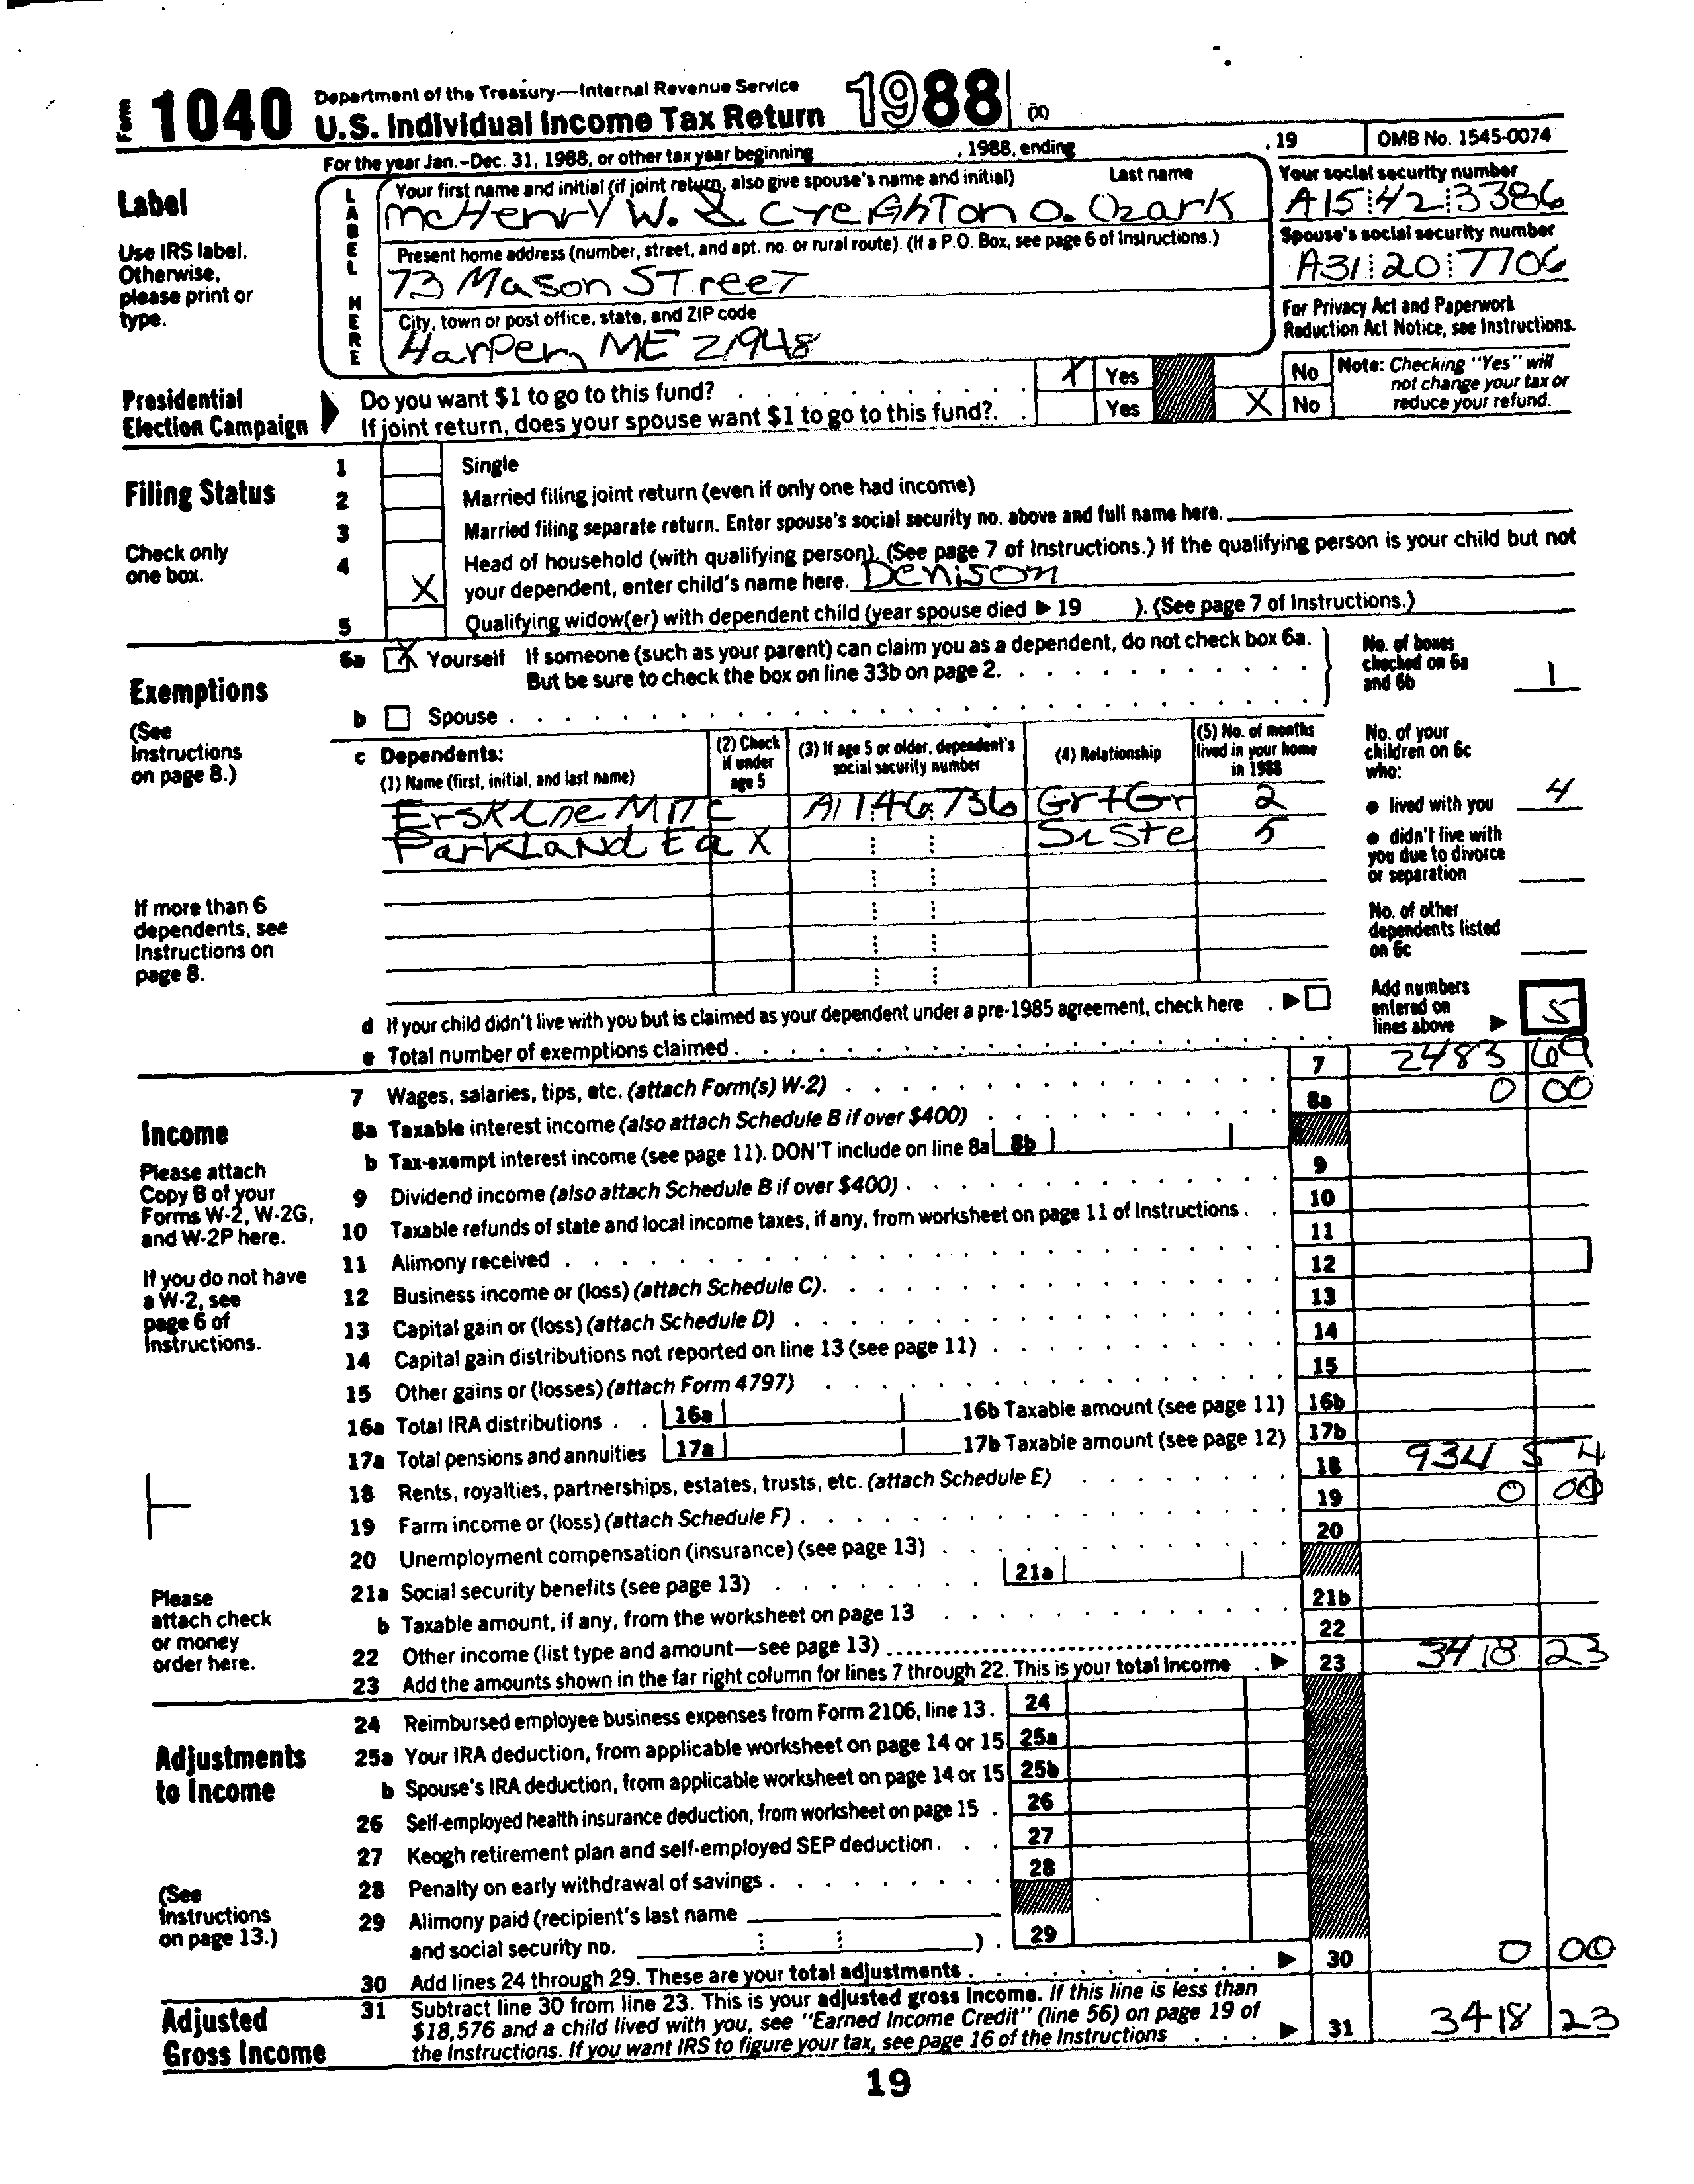 Form 1040 Department of the Treasury—Internal Revenue Service
U.S. Individual Income Tax Return 1988 (X)
For the year Jan.–Dec. 31, 1988, or other tax year beginning , 1988, ending , 19 OMB No. 1545-0074
Label
Use IRS label.
Otherwise,
please print or
type.
LABEL HERE
Your first name and initial (if joint return, also give spouse's name and initial) Last name
McHenry W. & Creighton O. Ozark
Your social security number
A15 42 3386
Present home address (number, street, and apt. no. or rural route). (If a P.O. Box, see page 6 of Instructions.)
73 Mason Street
Spouse's social security number
A31 20 7706
City, town or post office, state, and ZIP code
Harper, ME 21948
For Privacy Act and Paperwork
Reduction Act Notice, see Instructions.
Presidential
Election Campaign
Do you want $1 to go to this fund? X Yes No
If joint return, does your spouse want $1 to go to this fund? Yes X No
Note: Checking "Yes" will
not change your tax or
reduce your refund.
Filing Status
Check only
one box.
1 Single
2 Married filing joint return (even if only one had income)
3 Married filing separate return. Enter spouse's social security no. above and full name here.
4 Head of household (with qualifying person). (See page 7 of Instructions.) If the qualifying person is your child but not
X your dependent, enter child's name here. Denison
5 Qualifying widow(er) with dependent child (year spouse died ▶ 19 ). (See page 7 of Instructions.)
Exemptions
(See
Instructions
on page 8.)
6a X Yourself If someone (such as your parent) can claim you as a dependent, do not check box 6a.
But be sure to check the box on line 33b on page 2.
b Spouse
No. of boxes
checked on 6a
and 6b 1
c Dependents:
(1) Name (first, initial, and last name)
(2) Check
if under
age 5
(3) If age 5 or older, dependent's
social security number
(4) Relationship
(5) No. of months
lived in your home
in 1988
Erskine Mitc A1 146 736 Gr+Gr 2
Parkland Ea X Siste 5
No. of your
children on 6c
who:
● lived with you 4
● didn't live with
you due to divorce
or separation
No. of other
dependents listed
on 6c
If more than 6
dependents, see
Instructions on
page 8.
d If your child didn't live with you but is claimed as your dependent under a pre-1985 agreement, check here ▶
e Total number of exemptions claimed
Add numbers
entered on
lines above ▶ 5
Income
Please attach
Copy B of your
Forms W-2, W-2G,
and W-2P here.
If you do not have
a W-2, see
page 6 of
Instructions.
Please
attach check
or money
order here.
7 Wages, salaries, tips, etc. (attach Form(s) W-2) 7 2483 69
8a Taxable interest income (also attach Schedule B if over $400) 8a 0 00
b Tax-exempt interest income (see page 11). DON'T include on line 8a 8b
9 Dividend income (also attach Schedule B if over $400) 9
10 Taxable refunds of state and local income taxes, if any, from worksheet on page 11 of Instructions 10
11 Alimony received 11
12 Business income or (loss) (attach Schedule C) 12
13 Capital gain or (loss) (attach Schedule D) 13
14 Capital gain distributions not reported on line 13 (see page 11) 14
15 Other gains or (losses) (attach Form 4797) 15
16a Total IRA distributions 16a 16b Taxable amount (see page 11) 16b
17a Total pensions and annuities 17a 17b Taxable amount (see page 12) 17b
18 Rents, royalties, partnerships, estates, trusts, etc. (attach Schedule E) 18 934 54
19 Farm income or (loss) (attach Schedule F) 19 0 00
20 Unemployment compensation (insurance) (see page 13) 20
21a Social security benefits (see page 13) 21a
b Taxable amount, if any, from the worksheet on page 13 21b
22 Other income (list type and amount—see page 13) 22
23 Add the amounts shown in the far right column for lines 7 through 22. This is your total income ▶ 23 3418 23
Adjustments
to Income
(See
Instructions
on page 13.)
24 Reimbursed employee business expenses from Form 2106, line 13. 24
25a Your IRA deduction, from applicable worksheet on page 14 or 15 25a
b Spouse's IRA deduction, from applicable worksheet on page 14 or 15 25b
26 Self-employed health insurance deduction, from worksheet on page 15 26
27 Keogh retirement plan and self-employed SEP deduction 27
28 Penalty on early withdrawal of savings 28
29 Alimony paid (recipient's last name
and social security no. ) 29
30 Add lines 24 through 29. These are your total adjustments ▶ 30 0 00
Adjusted
Gross Income
31 Subtract line 30 from line 23. This is your adjusted gross income. If this line is less than
$18,576 and a child lived with you, see "Earned Income Credit" (line 56) on page 19 of
the Instructions. If you want IRS to figure your tax, see page 16 of the Instructions ▶ 31 3418 23
19